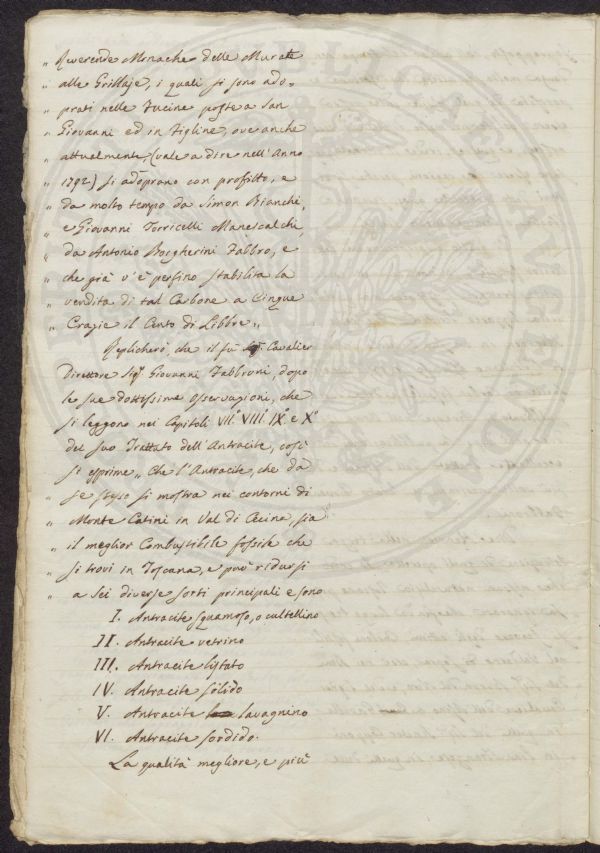 „ Reverende Monache delle Murate
„ alle Grillaje, i quali si sono ado-
„ prati nelle Fucine poste a San
„ Giovanni ed in Figline, ove anche
„ attualmente (vale a dire nell'Anno
„ 1792) si adoprano con profitto, e
„ da molto tempo da Simon Bianchi,
„ e Giovanni Torricelli Manescalchi,
„ da Antonio Borgherini Fabbro, e
„ che già v'è persino stabilita la
„ vendita di tal Carbone a Cinque
„ Crazie il Cento di Libbre „
Replicherò, che il fù Sig.r Cavalier
Direttore Sig.r Giovanni Fabbroni, dopo
le sue dottissime osservazioni, che
si leggono nei Capitoli VII.o VIII.o IX.o e X.o
del suo Trattato dell'Antracite, così
si esprime „ Che l'Antracite, che da
„ se stesso si mostra nei contorni di
„ Monte Catini in Val di Cecina, sia
„ il meglior Combustibile fossile che
„ si trovi in Toscana, e può ridursi
„ a sei diverse sorti principali e sono
I. Antracite squamoso, o cultellino
II. Antracite vetrino
III. Antracite listato
IV. Antracite solido
V. Antracite lavagnino
VI. Antracite sordido.
La qualità megliore, e più